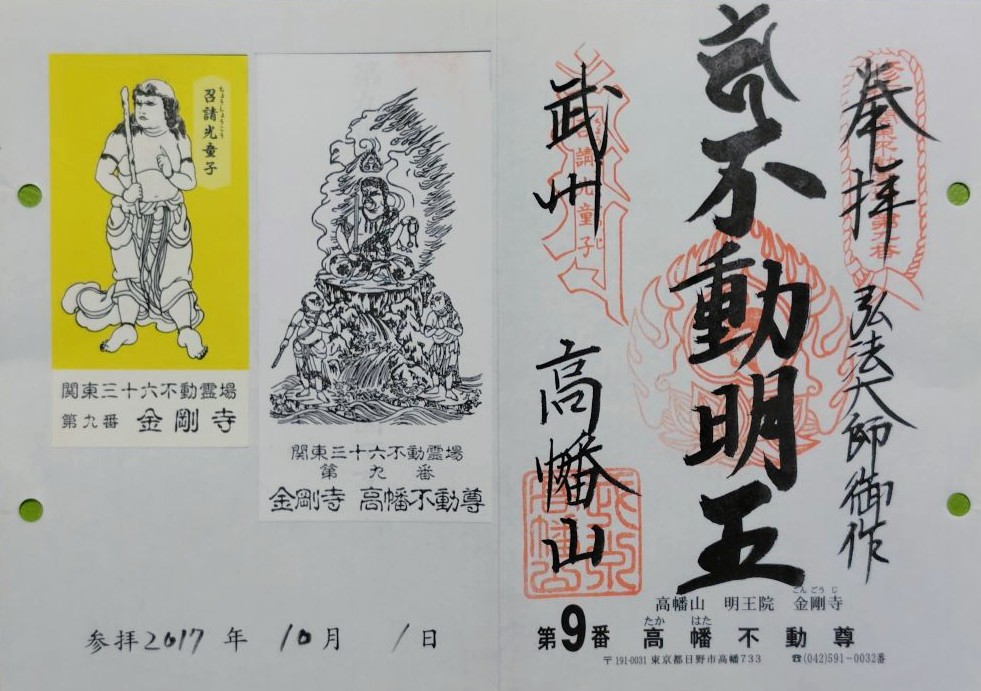 奉拝 弘法大師御作
不動明王
武州 高幡山
召請光童子
高幡山 明王院 金剛寺
こんごうじ
第9番 高幡不動尊
たか はた
〒191-0031 東京都日野市高幡733 ☎(042)591-0032番
召請光童子
関東三十六不動霊場
第九番 金剛寺
関東三十六不動霊場
第九番
金剛寺 高幡不動尊
参拝2017年 10月 1日